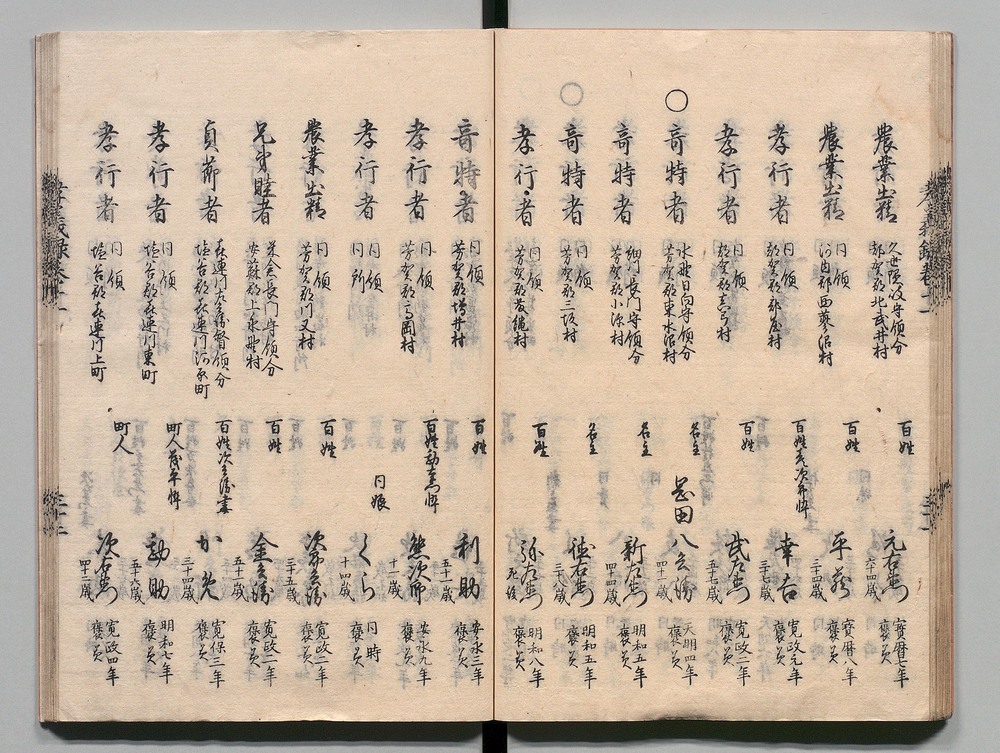 農業出精 久世隠岐守領分 都賀郡北武井村 百姓 元右衛門 六十四歳 寶暦七年 褒美
農業出精 同領 河内郡西蓼沼村 百姓 平蔵 三十四歳 寶暦八年 褒美
孝行者 同領 都賀郡 百姓 幸吉 三十七歳 寛政元年 褒美
孝行者 同領 都賀郡 百姓 武左衛門 五十七歳 寛政二年 褒美
○奇特者 水野日向守領分 芳賀郡東水沼村 名主 岡田八兵衛 四十二歳 天明四年 褒美
奇特者 細川長門守領分 芳賀郡小深村 名主 新左衛門 四十四歳 明和五年 褒美
○奇特者 同領 芳賀郡三坂村 名主 徳右衛門 三十九歳 明和五年 褒美
孝行者 同領 芳賀郡 百姓 弥左衛門 死後 明和八年 褒美
奇特者 同領 芳賀郡増井村 百姓 利助 五十一歳 安永三年 褒美
孝行者 同領 芳賀郡高岡村 百姓勘左衛門忰 熊次郎 十二歳 安永九年 褒美
孝行者 同領 同所 同娘 くら 十四歳 同時 褒美
農業出精 同領 芳賀郡川又村 百姓 次郎兵衛 三十五歳 寛政二年 褒美
兄弟睦者 米倉長門守領分 安蘇郡上永野村 百姓 金兵衛 五十一歳 寛政二年 褒美
貞節者 喜連川左兵衛督領分 塩谷郡喜連川河原町 百姓次兵衛妻 三十四歳 寛保三年 褒美
孝行者 同領 塩谷郡喜連川東町 町人茂平忰 勘助 五十六歳 明和七年 褒美
孝行者 同領 塩谷郡喜連川上町 町人 次右衛門 四十二歳 寛政四年 褒美